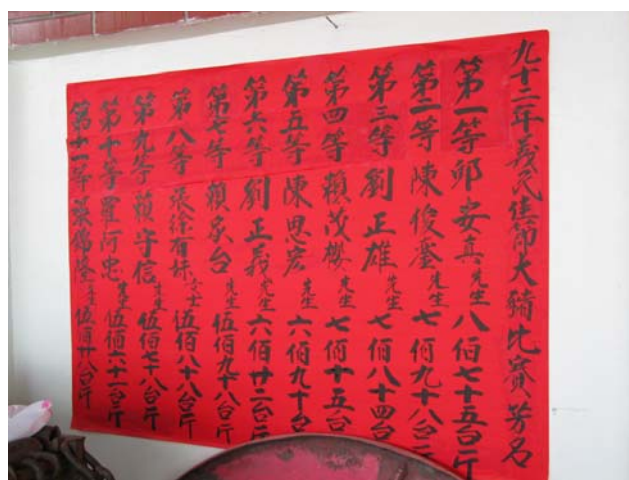 九十二年義民佳節大豬比賽芳名
第一等 邱安真先生 八佰七十五台斤
第二等 陳俊奎先生 七佰九十八台斤
第三等 劉正雄先生 七佰八十四台
第四等 賴茂櫻先生 七佰十五台
第五等 陳思宏先生 六佰九十台
第六等 劉正義先生 六佰廿二台斤
第七等 賴炎台先生 伍佰九十八台斤
第八等 張徐有妹女士 伍佰八十八台斤
第九等 賴守信先生 伍佰七十八台斤
第十等 羅阿忠先生 伍佰六十一台斤
第十一等 葉錦隆先生 伍佰廿八台斤